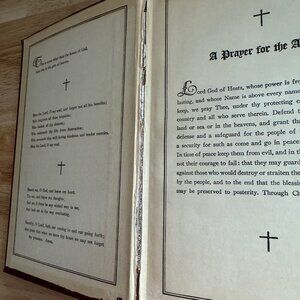 This is none other than the house of God,
and this is the gate of heaven.
Bless the Lord, O my soul, and forget not all his benefits;
Who forgiveth all thine iniquities;
Who healeth all thy diseases;
Who redeemeth thy life from destruction;
Who crowneth thee with loving kindness, and tender mercies.
Bless the Lord, O my soul.
Search me, O God, and know my heart;
Try me, and know my thoughts;
And see if there be any wicked way in me,
And lead me in the way everlasting.
O Lord, both our coming in and our going forth;
And grant that when we leave thy house we may not forget
thy presence. Amen.
A Prayer for the A
Lord God of Hosts, whose power is fro
lasting, and whose Name is above every name
keep, we pray Thee, under thy protecting c
country and all who serve therein. Defend t
land or sea or in the heavens, and grant tha
defense and a safeguard for the people of
a security for such as come and go in peace
In time of peace keep them from evil, and in th
not their courage to fail: that they may guard
against those who would destroy or straiten the
by the people, and to the end that the blessin
may be preserved to posterity. Through Ch